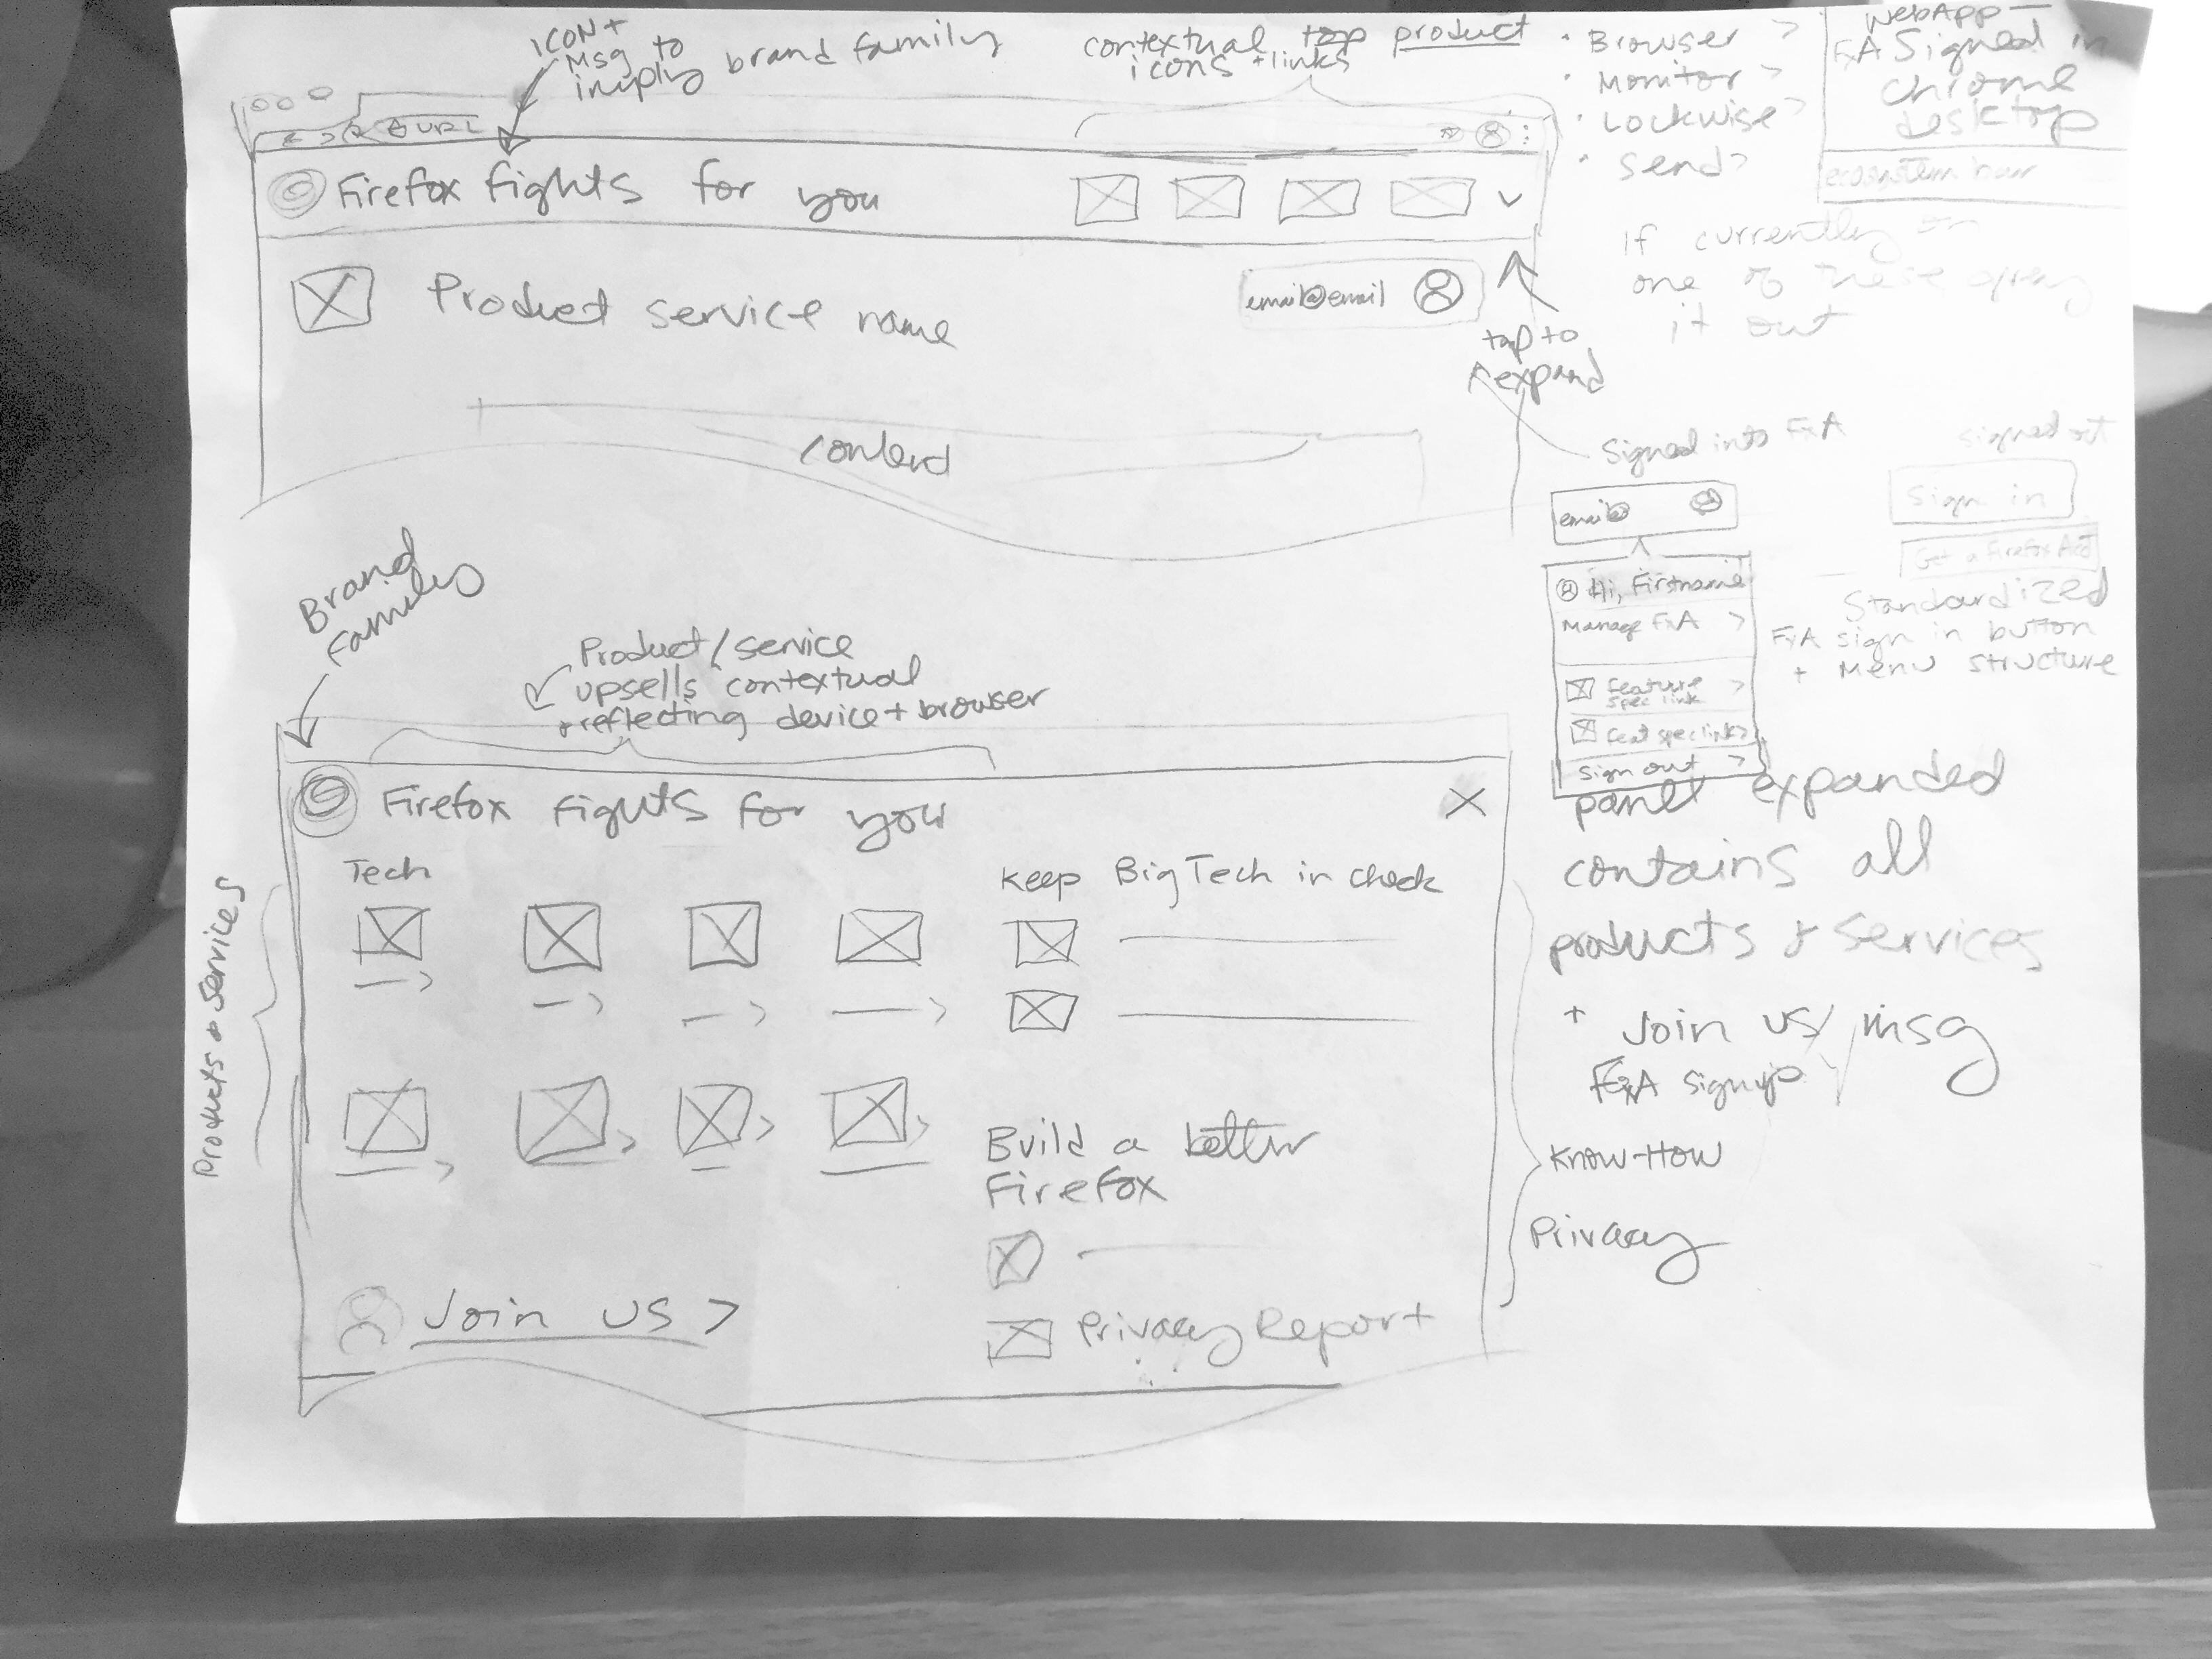 ICON +
Msg to
imply brand family
contextual top product
icons + links
• Browser >
• Monitor >
• Lockwise >
• Send >
WebApp —
FxA Signed in
Chrome
desktop
ecosystem bar
URL
Firefox fights for you
If currently on
one of these
it out
Product service name
email@email
tap to
expand
content
Signed into FxA
signed out
email@
Sign in
Get a Firefox Acct
Hi, Firstname
Manage FxA >
Feature >
spec link
Feat spec link >
Sign out >
Standardized
FxA sign in button
+ Menu structure
Brand
Family
Product/service
upsells contextual
+ reflecting device + browser
Firefox fights for you
X
Products + Services
Tech
Keep Big Tech in check
Build a better
Firefox
Privacy Report
Join us >
panel expanded
contains all
products + services
+ Join us/msg
FxA signup
Know-How
Privacy